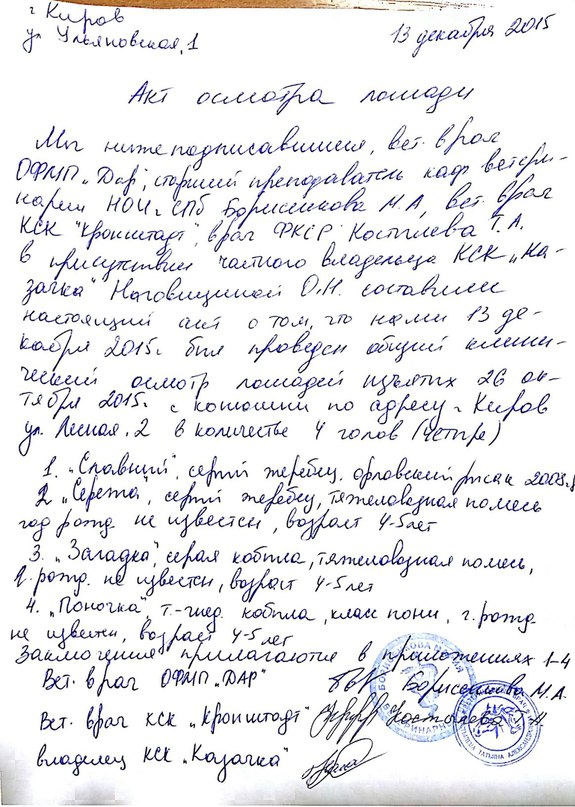 г Киров
ул Ульяновская, 1
13 декабря 2015
Акт осмотра лошади
Мы нижеподписавшиеся, вет. врач
ОФМП "Дар", старший преподаватель каф ветери-
нарии НОИ г СПб Борисенкова М.А, вет. врач
КСК "Кронштадт", врач ФКСР Костылева Т.А.
в присутствии частного владельца КСК "Ка-
зачка" Наговициной О.Н. составили
настоящий акт о том, что нами 13 де-
кабря 2015г. был проведен общий клини-
ческий осмотр лошадей изъятых 26 ок-
тября 2015г. с конюшни по адресу г Киров
ул. Лесная, 2 в количестве 4 голов (четыре)
1. "Славный", серый жеребец. орловский рысак 2008 г
2 "Сережа", серый жеребец, тяжеловозная помесь
год рожд. не известен, возраст 4-5 лет
3. "Загадка", серая кобыла, тяжеловозная помесь,
г. рожд. не известен, возраст 4-5 лет
4. "Поночка" т.-гнед. кобыла, класс пони, г. рожд
не известен, возраст 4-5 лет
Заключения прилагаются в приложениях 1-4
Вет. врач ОФМП "ДАР" Борисенкова М.А.
Вет. врач КСК "Кронштадт" Костылева Т.А
владелец КСК "Казачка"